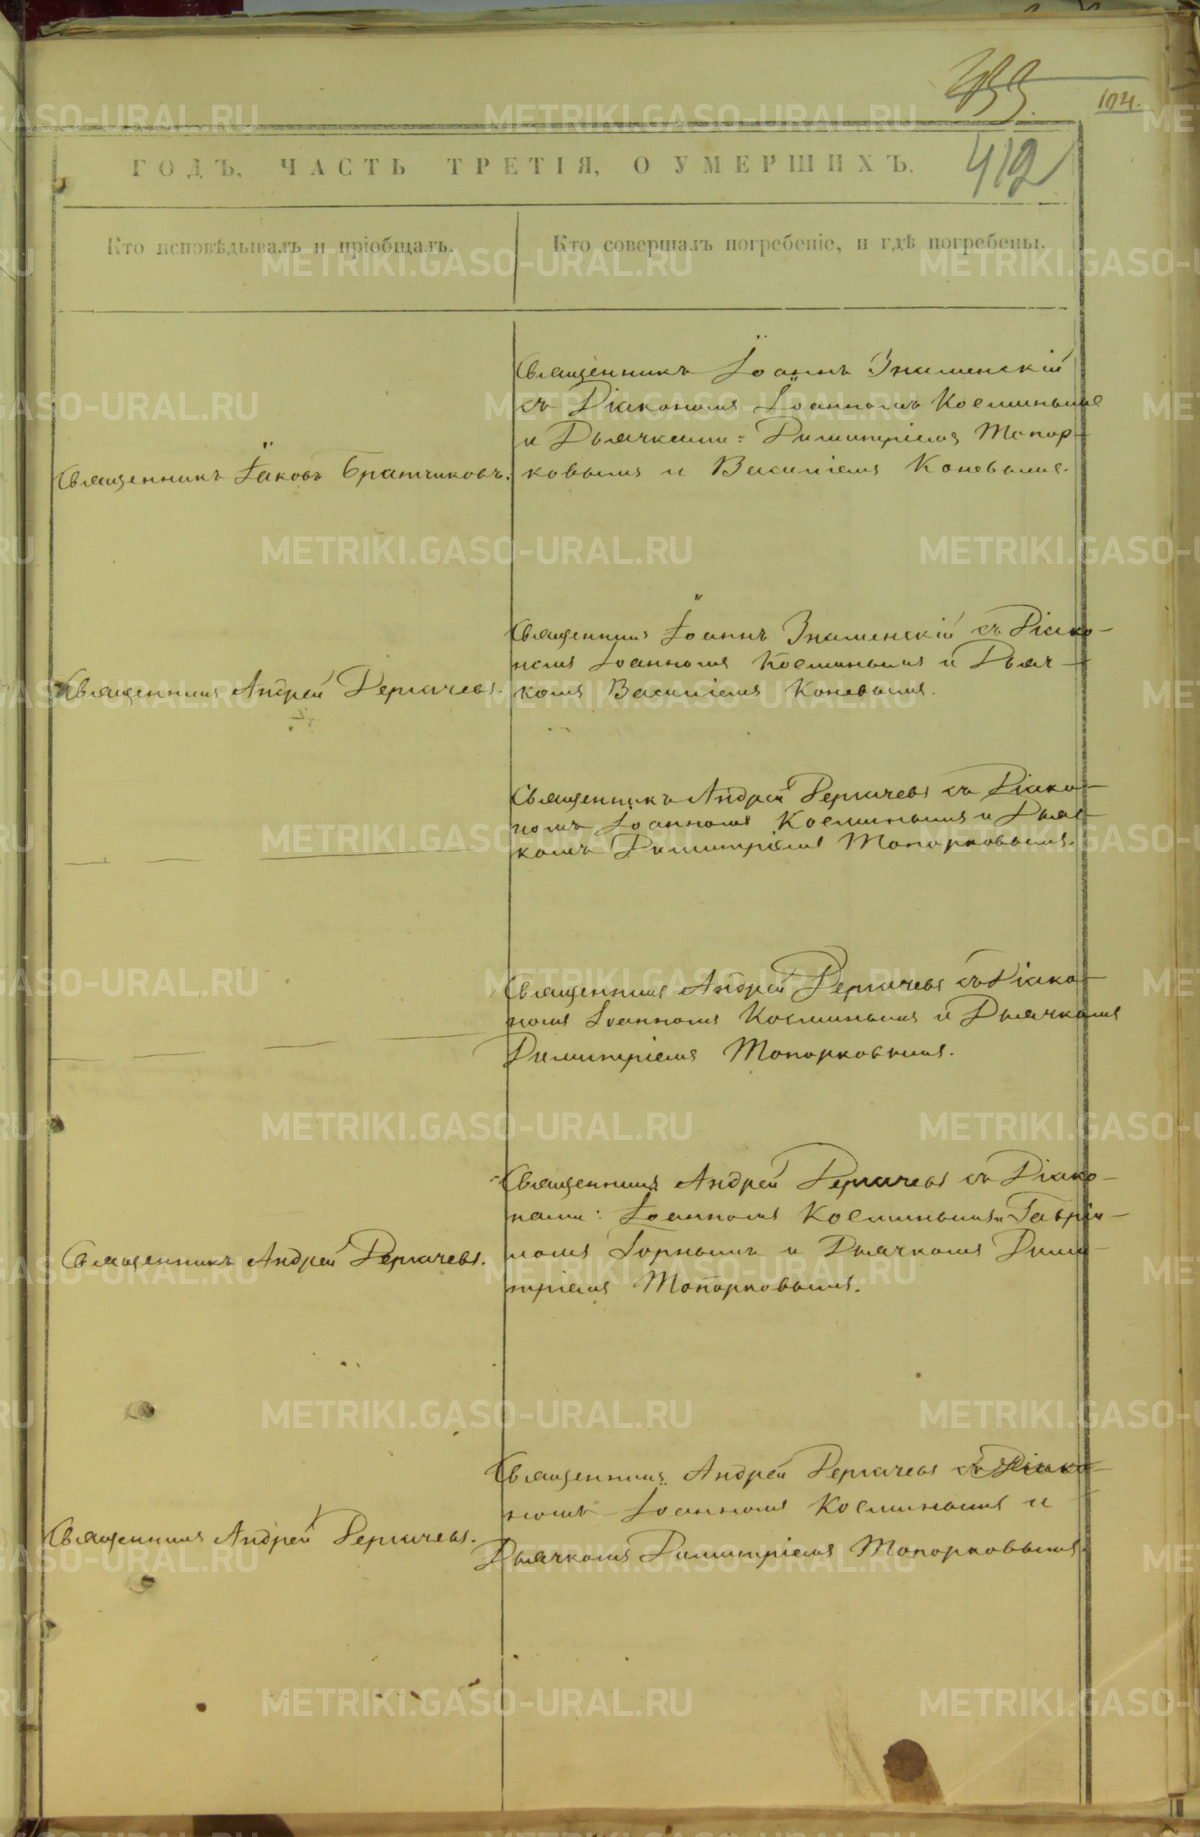 104.
412
ГОДЪ, ЧАСТЬ ТРЕТІЯ, О УМЕРШИХЪ.
Кто исповѣдывалъ и пріобщалъ.
Кто совершалъ погребеніе, и гдѣ погребены.
Священникъ Іаковъ Братчиковъ.
Священникъ Іоаннъ Знаменскій
съ Діакономъ Іоанномъ Косминымъ
и Дьячками: Димитріемъ Топор-
ковымъ и Василіемъ Коневымъ.
Священникъ Андрей Дергачевъ.
Священникъ Іоаннъ Знаменскій съ Діако-
номъ Іоанномъ Косминымъ и Дьяч-
комъ Василіемъ Коневымъ.
Священникъ Андрей Дергачевъ съ Діако-
номъ Іоанномъ Косминымъ и Дьяч-
комъ Димитріемъ Топорковымъ.
Священникъ Андрей Дергачевъ съ Діако-
номъ Іоанномъ Косминымъ и Дьячкомъ
Димитріемъ Топорковымъ.
Священникъ Андрей Дергачевъ.
Священникъ Андрей Дергачевъ съ Діако-
нами: Іоанномъ Косминымъ и Гаврі-
иломъ Горнымъ и Дьячкомъ Дими-
тріемъ Топорковымъ.
Священникъ Андрей Дергачевъ.
Священникъ Андрей Дергачевъ съ Діако-
номъ Іоанномъ Косминымъ и
Дьячкомъ Димитріемъ Топорковымъ.
METRIKI.GASO-URAL.RU